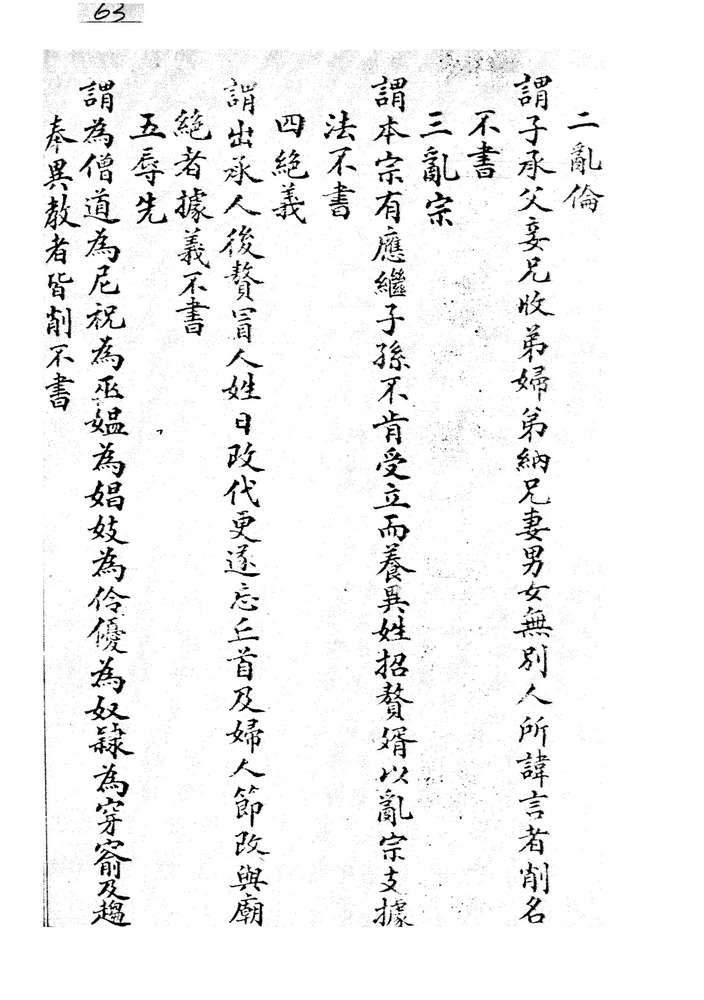 63
二亂倫
謂子承父妾兄收弟婦弟納兄妻男女無別人所諱言者削名
不書
三亂宗
謂本宗有應繼子孫不肯受立而養異姓招贅婿以亂宗支據
法不書
四絕義
謂出承人後贅冒人姓日改代更遂忘丘首及婦人節改與廟
絕者據義不書
五辱先
謂為僧道為尼祝為巫媼為娼妓為伶優為奴隸為穿窬及趨
奉異教者皆削不書